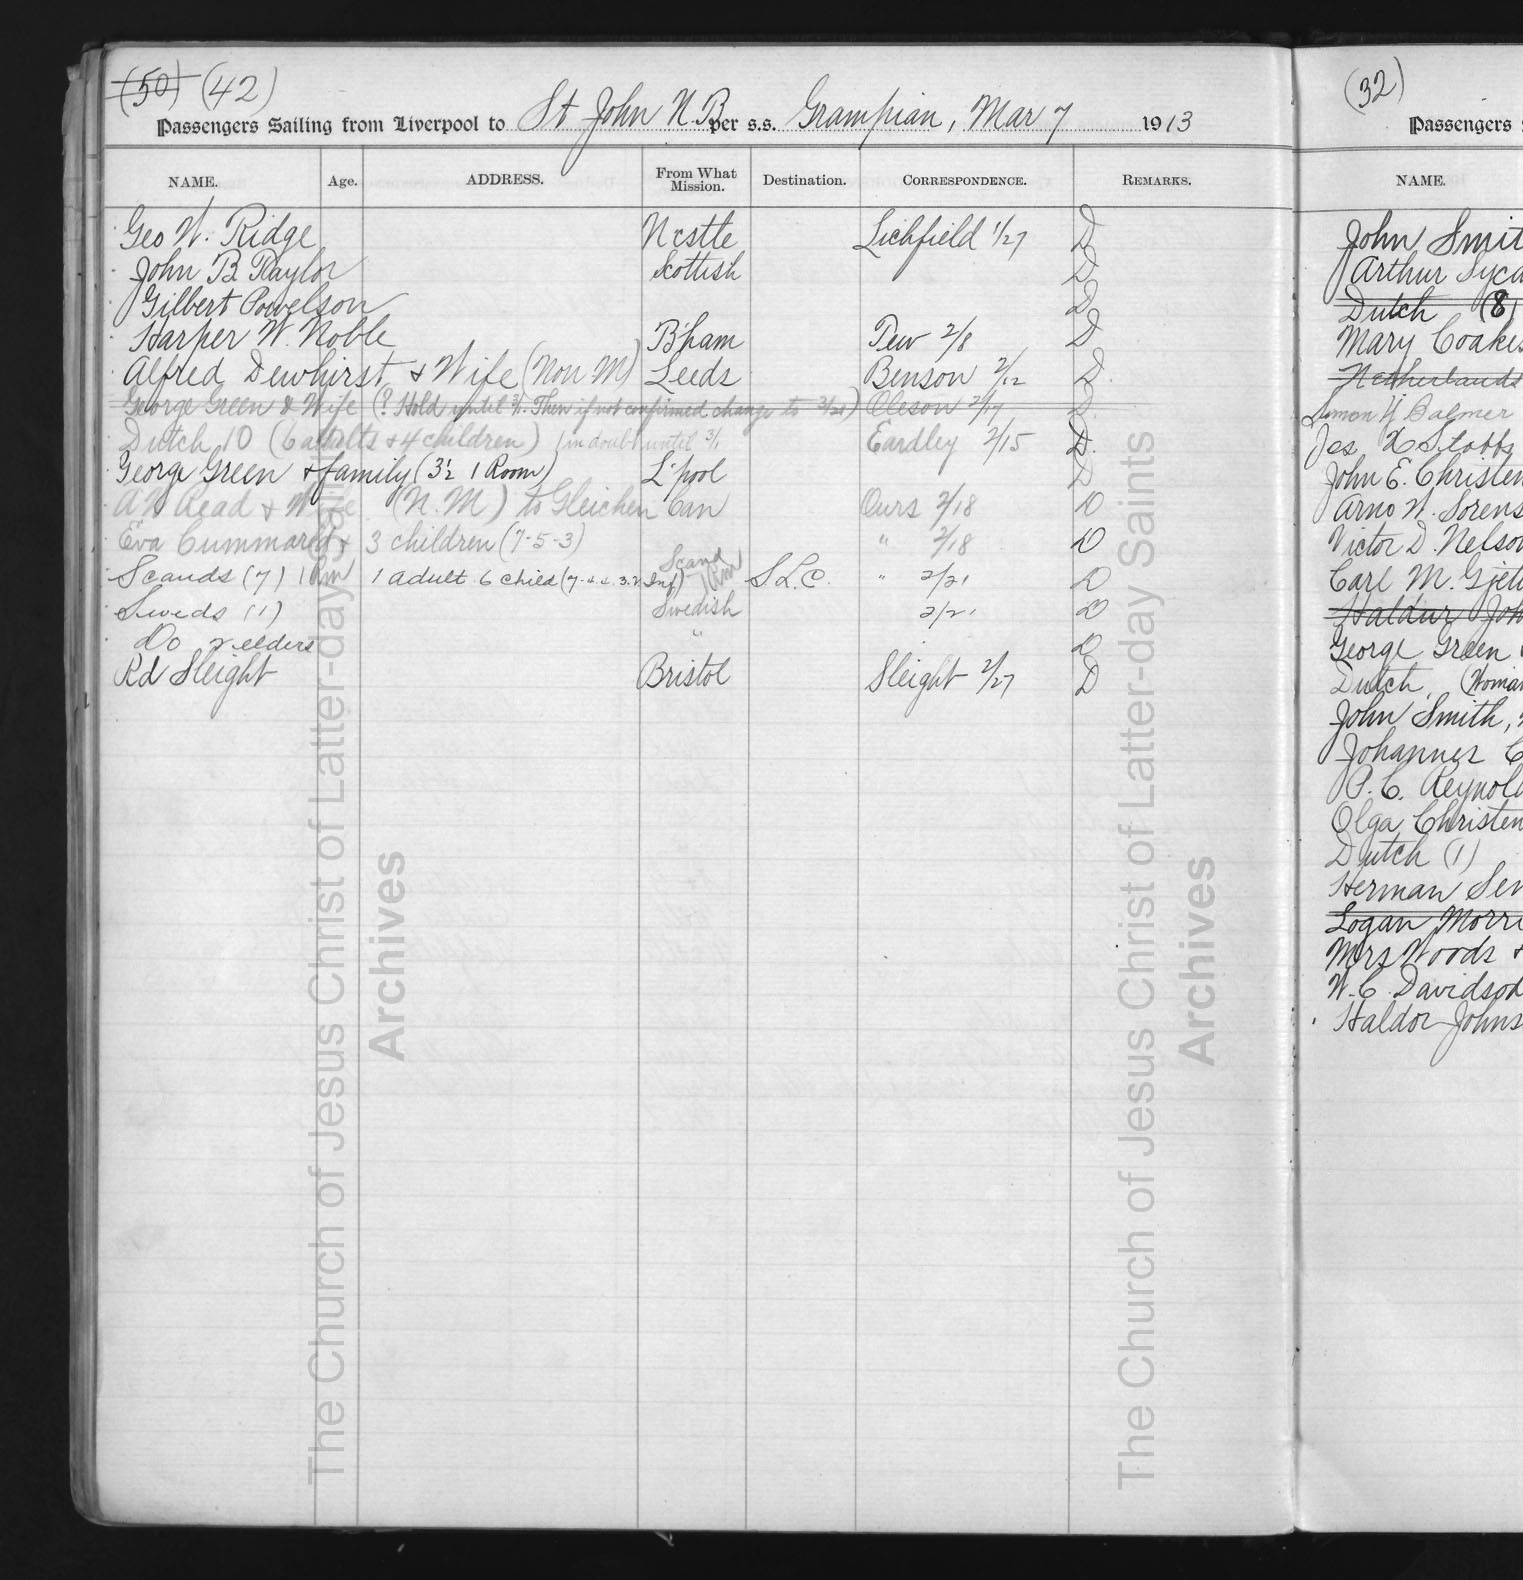 (50) (42)
Passengers Sailing from Liverpool to St John N.B. per s.s. Grampian, Mar 7 1913
NAME. Age. ADDRESS. From What Mission. Destination. CORRESPONDENCE. REMARKS.
Geo W. Ridge Ncstle Lichfield 1/27 D
John B Taylor Scottish D
Gilbert Powelson D
Harper W. Noble B'ham Pew 2/8 D
Alfred Dewhirst & Wife (Non M) Leeds Benson 2/12 D
George Green & Wife (? Hold until 3/1. Then if not confirmed change to 3/21) Oleson 2/17 D
Dutch 10 (6 adults & 4 children) (in doubt until 3/1 Eardley 2/15 D.
George Green & family (3½ 1 Room) L'pool D
A W Read & Wife (N.M.) to Gleichen Can Ours 2/18 D
Eva Cummard & 3 children (7-5-3) " 2/18 D
Scands (7) 1 Rm 1 adult 6 child Scand S.L.C. " 2/21 D
Sweds (1) Swedish 2/21 D
Do 2 elders " D
Rd Sleight Bristol Sleight 2/27 D
(32)
Passengers
NAME.
John Smit
Arthur Syca
Dutch (8)
Mary Coakes
Netherlands
Simon Balmer
Jas Stobbs
John E. Christen
Arno W. Sorens
Victor D. Nelson
Carl M. Gjett
Haldur Joh
George Green
Dutch (Woman
John Smith,
Johannes C
P. C. Reynold
Olga Christen
Dutch (1)
Herman Sen
Logan Morri
Mrs Woods &
W. C. Davidson
Haldor Johns
The Church of Jesus Christ of Latter-day Saints
Archives
The Church of Jesus Christ of Latter-day Saints
Archives